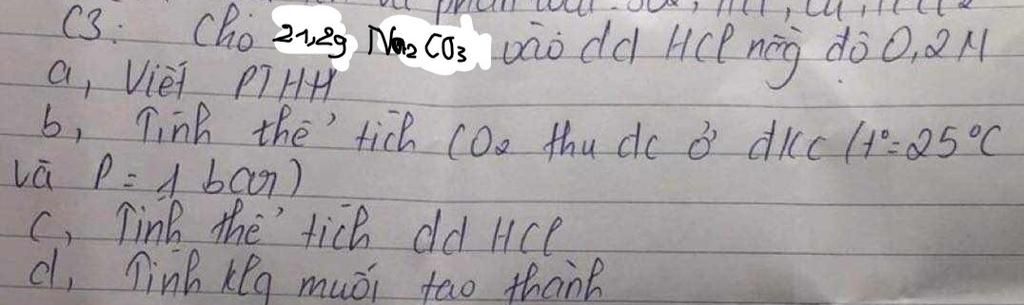 C3: Cho 21,2g Na2CO3 vào dd HCl nồng độ 0,2M
a, Viết PTHH
b, Tính thể tích CO2 thu dc ở đkc (t°=25°C
và P = 1 bar)
c, Tính thể tích dd HCl
d, Tính klg muối tạo thành